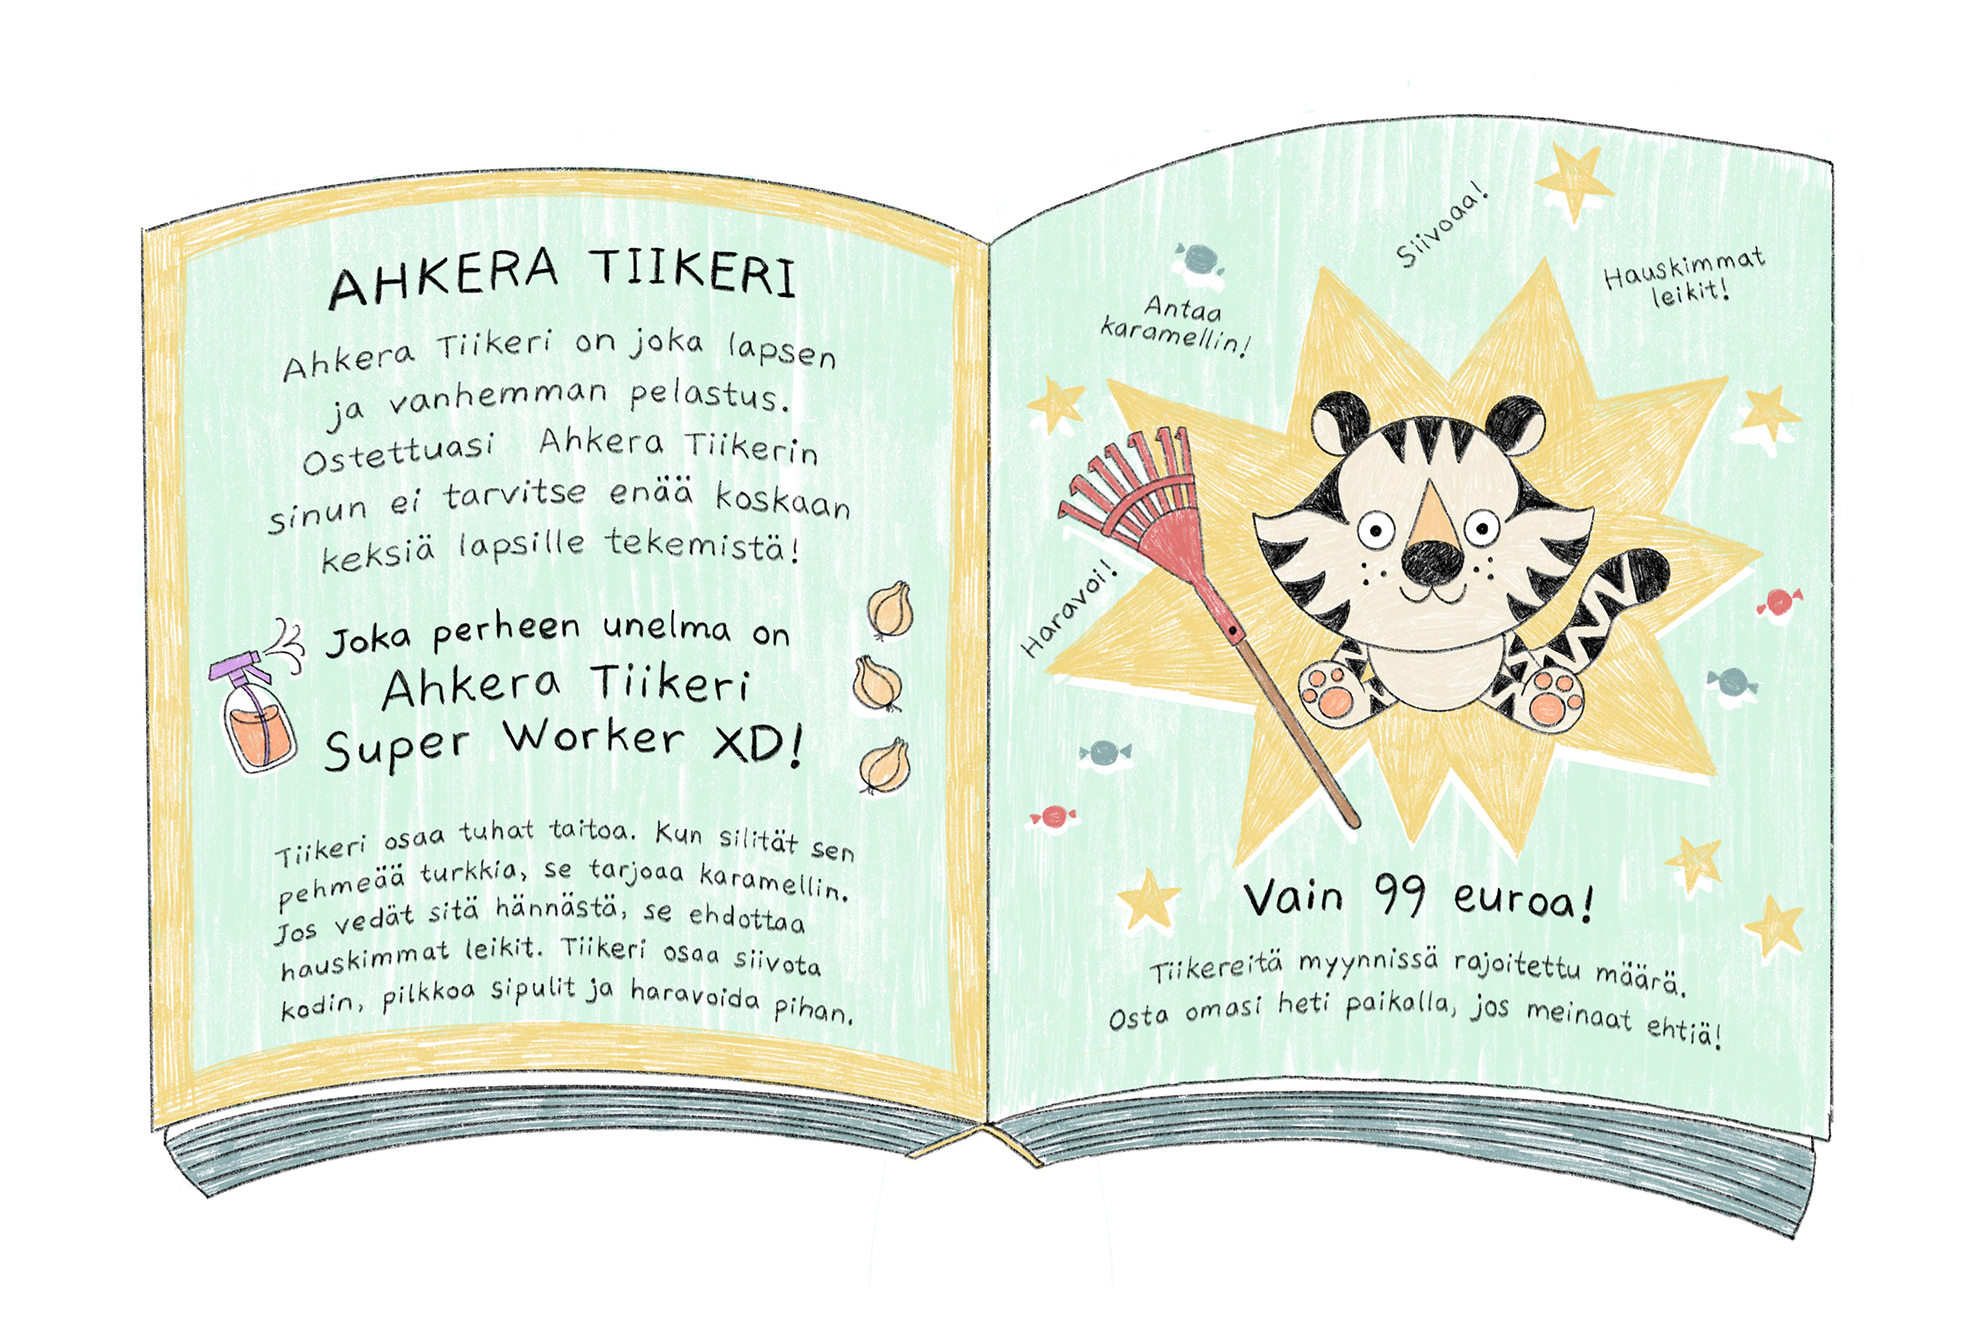 AHKERA TIIKERI
Ahkera Tiikeri on joka lapsen
ja vanhemman pelastus.
Ostettuasi Ahkera Tiikerin
sinun ei tarvitse enää koskaan
keksiä lapsille tekemistä!
Joka perheen unelma on
Ahkera Tiikeri
Super Worker XD!
Tiikeri osaa tuhat taitoa. Kun silität sen
pehmeää turkkia, se tarjoaa karamellin.
Jos vedät sitä hännästä, se ehdottaa
hauskimmat leikit. Tiikeri osaa siivota
kodin, pilkkoa sipulit ja haravoida pihan.
Siivoaa!
Hauskimmat
leikit!
Antaa
karamellin!
Haravoi!
Vain 99 euroa!
Tiikereitä myynnissä rajoitettu määrä.
Osta omasi heti paikalla, jos meinaat ehtiä!